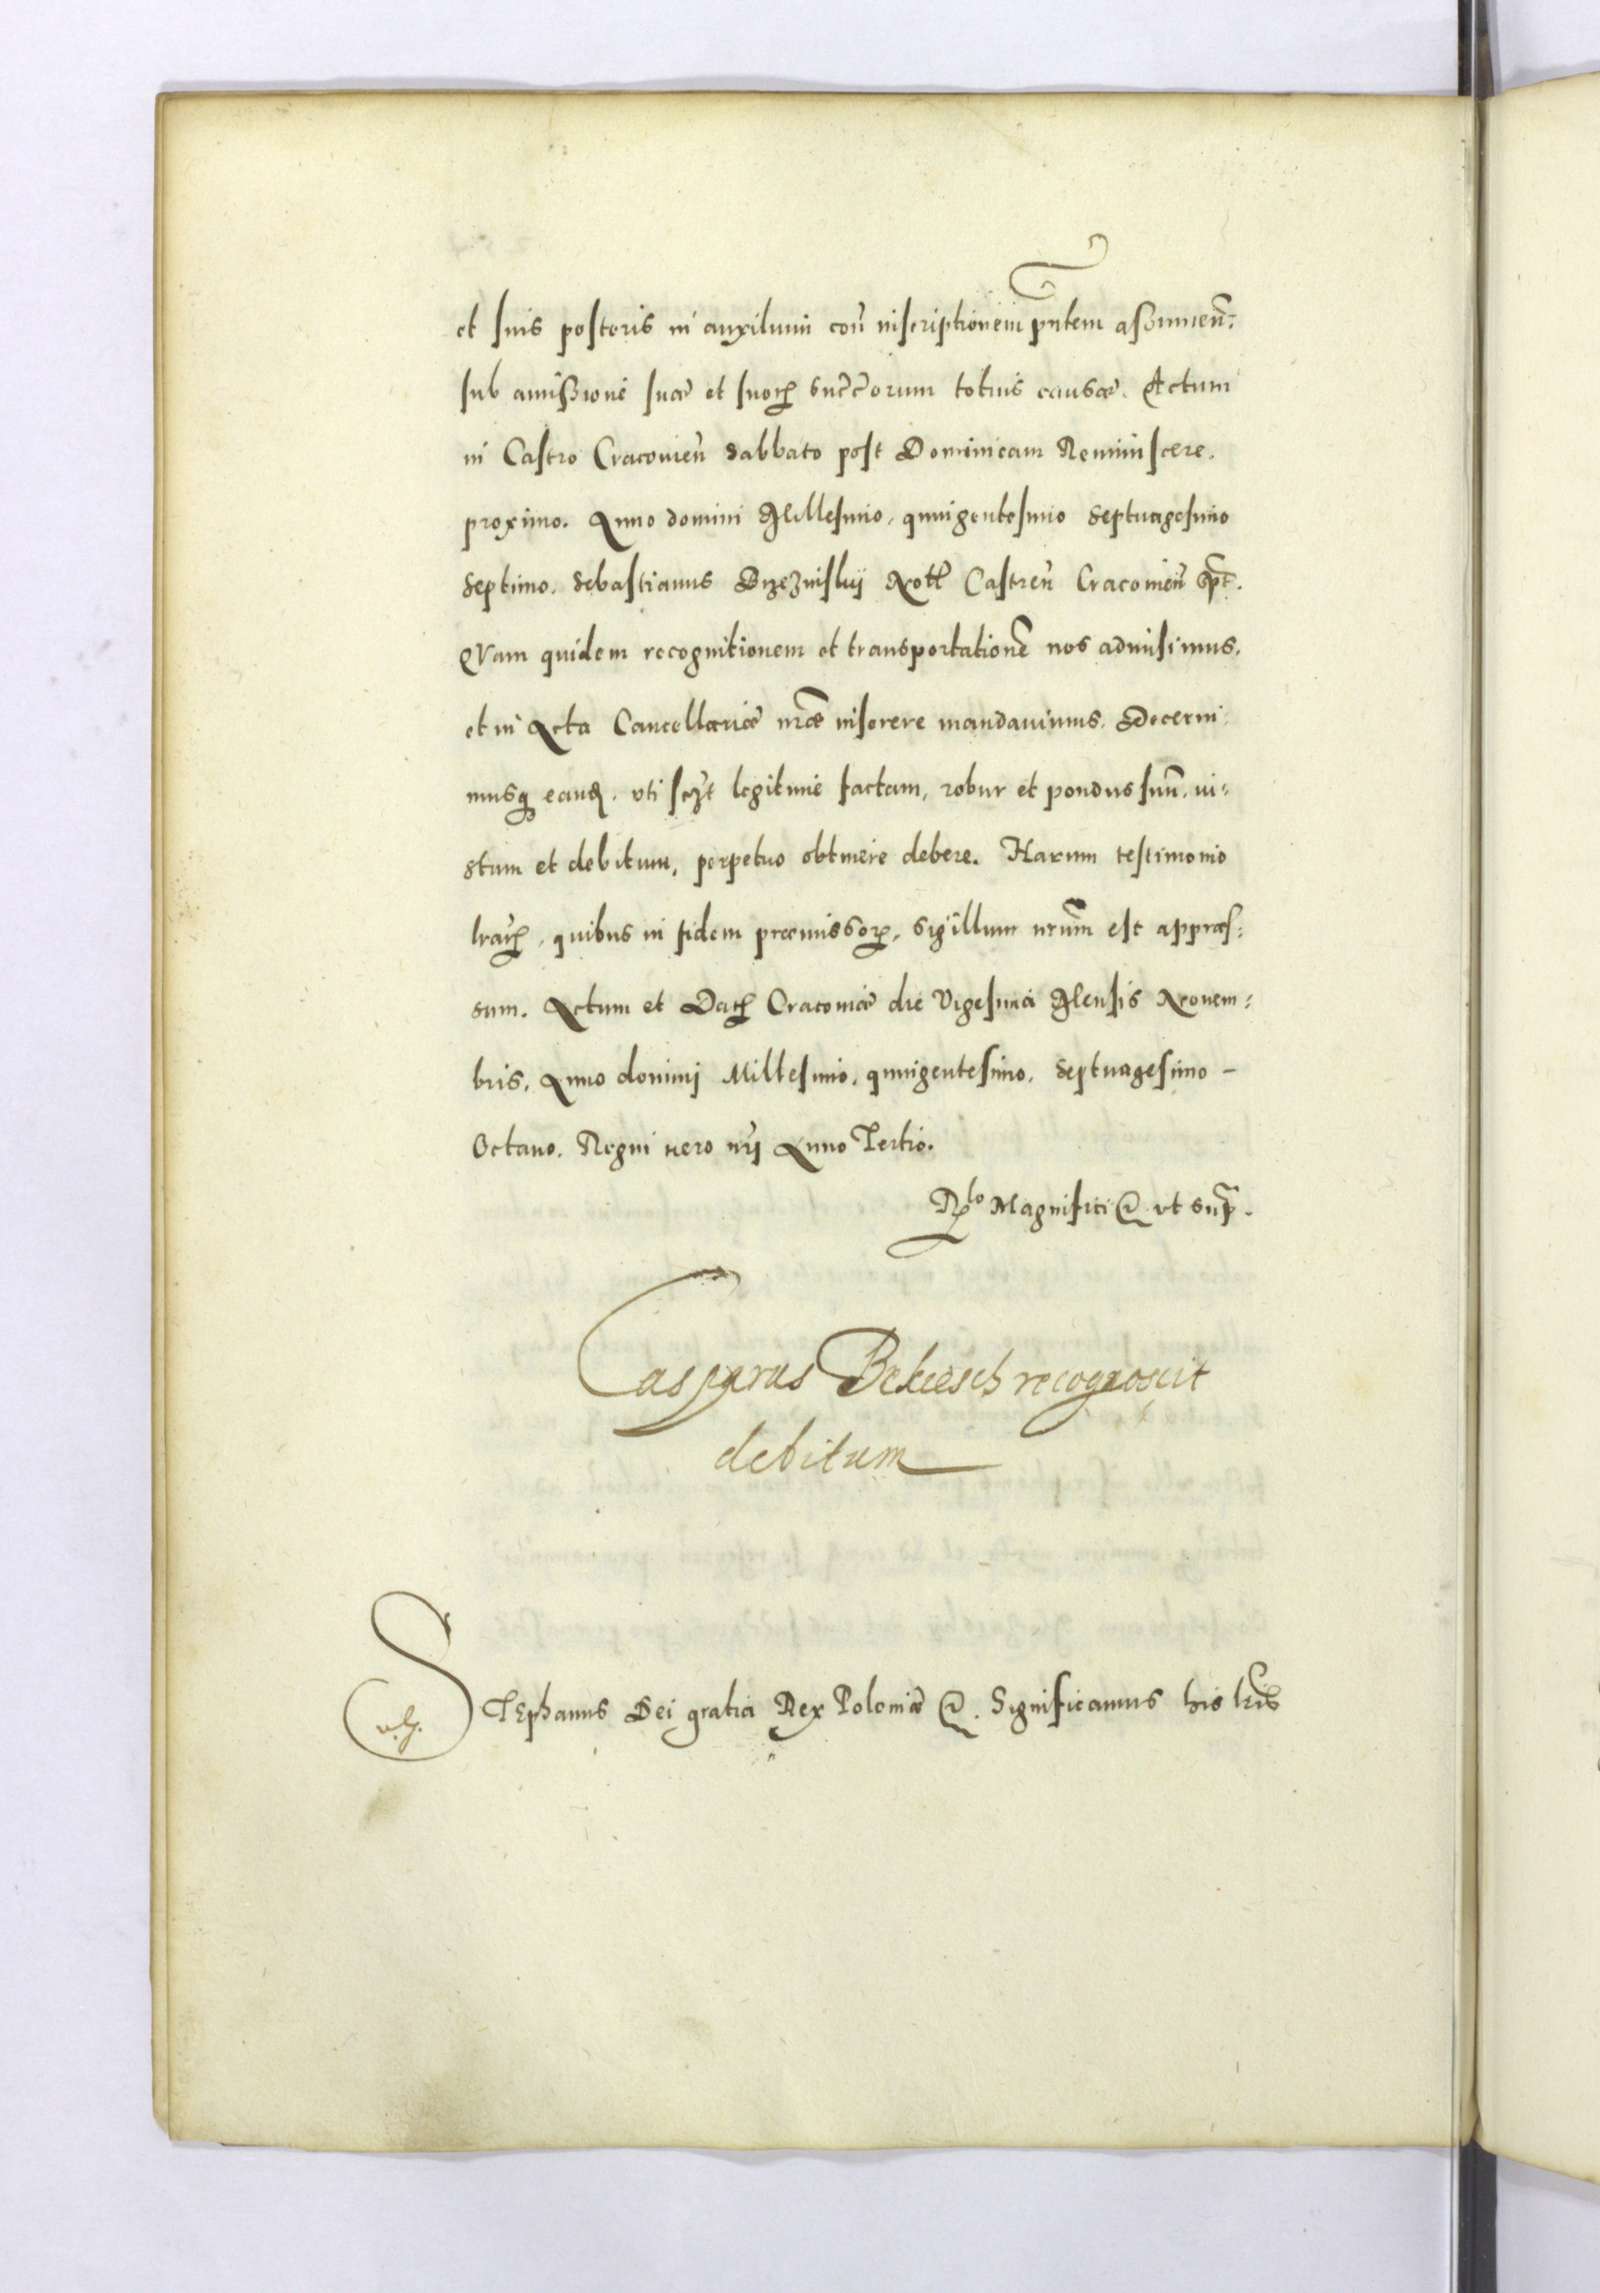 et suis posteris in auxilium coñ inscriptionem pñtem assumeñ:
sub amissione suae et suor̃ succ̃orum totius causae. Actum
in Castro Cracovieñ Sabbato post Dominicam Reminiscere.
proximo. Anno domini Millesimo, quingentesimo Septuagesimo
Septimo. Sebastianus Brzezinskij Not̃ Castreñ Cracovieñ
QVam quidem recognitionem et transportationẽ nos admisimus,
et in Acta Cancellariae nr̃ae inserere mandavimus. Decerni:
musq̃ eand̃. uti scȝt legitime factam, robur et pondus suũ, iu:
stum et debitum, perpetuo obtinere debere. Harum testimonio
lrar̃, quibus in fidem praemissor̃, sigillum nr̃um est appraes:
sum. Actum et Dat̃ Cracoviae die Vigesima Mensis Novem:
bris, Anno domini Millesimo, quingentesimo, Septuagesimo –
Octavo. Regni vero nr̃i Anno Tertio.
Rlo Magnifici & ut sup̃.
Casparus Bekiesch recognoscit
debitum
STEphanus Dei gratia Rex Poloniae &. Significamus his lr̃is